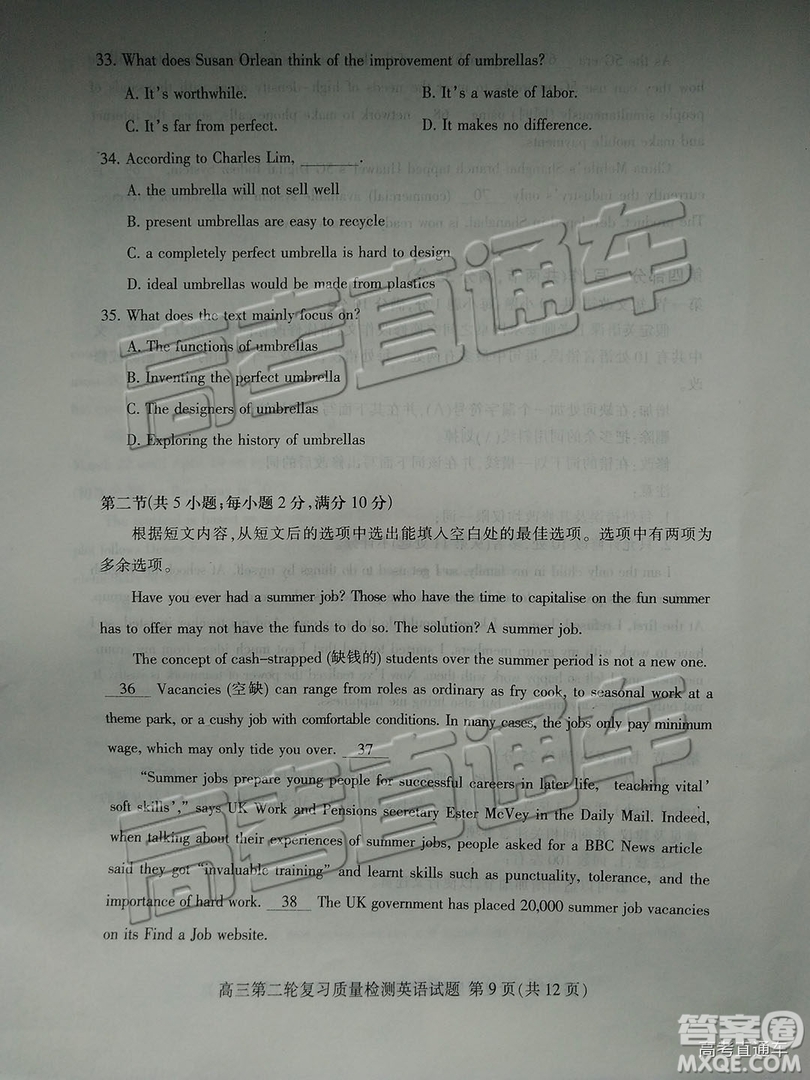 33. What does Susan Orlean think of the improvement of umbrellas?
A. It's worthwhile. B. It's a waste of labor.
C. It's far from perfect. D. It makes no difference.
34. According to Charles Lim, ______.
A. the umbrella will not sell well
B. present umbrellas are easy to recycle
C. a completely perfect umbrella is hard to design
D. ideal umbrellas would be made from plastics
35. What does the text mainly focus on?
A. The functions of umbrellas
B. Inventing the perfect umbrella
C. The designers of umbrellas
D. Exploring the history of umbrellas
第二节(共5小题;每小题2分,满分10分)
根据短文内容,从短文后的选项中选出能填入空白处的最佳选项。选项中有两项为
多余选项。
Have you ever had a summer job? Those who have the time to capitalise on the fun summer
has to offer may not have the funds to do so. The solution? A summer job.
The concept of cash-strapped (缺钱的) students over the summer period is not a new one.
36 Vacancies (空缺) can range from roles as ordinary as fry cook, to seasonal work at a
theme park, or a cushy job with comfortable conditions. In many cases, the jobs only pay minimum
wage, which may only tide you over. 37
"Summer jobs prepare young people for successful careers in later life, teaching vital '
soft skills'," says UK Work and Pensions secretary Ester McVey in the Daily Mail. Indeed,
when talking about their experiences of summer jobs, people asked for a BBC News article
said they got "invaluable training" and learnt skills such as punctuality, tolerance, and the
importance of hard work. 38 The UK government has placed 20,000 summer job vacancies
on its Find a Job website.
高三第二轮复习质量检测英语试题 第9页(共12页)
高考直通车
高考直通车
答案圈
高考直通车
MXQE.COM